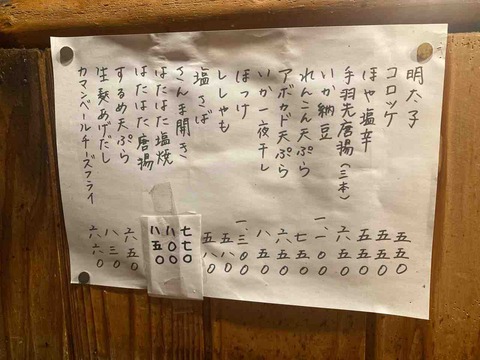 明太子 五五〇
コロッケ 五五〇
ほや塩辛 五五〇
手羽先唐揚(三本) 六五〇
いか納豆
れんこん天ぷら 七五〇
アボカド天ぷら 六五〇
いか一夜干し 八五〇
ほっけ 一、三〇〇
ししゃも 五八〇
塩さば 五八〇
さんま開き 七七〇
はたはた塩焼 八〇〇
はたはた唐揚 八五〇
するめ天ぷら 六五〇
生麩あげだし 八三〇
カマンベールチーズフライ 六六〇